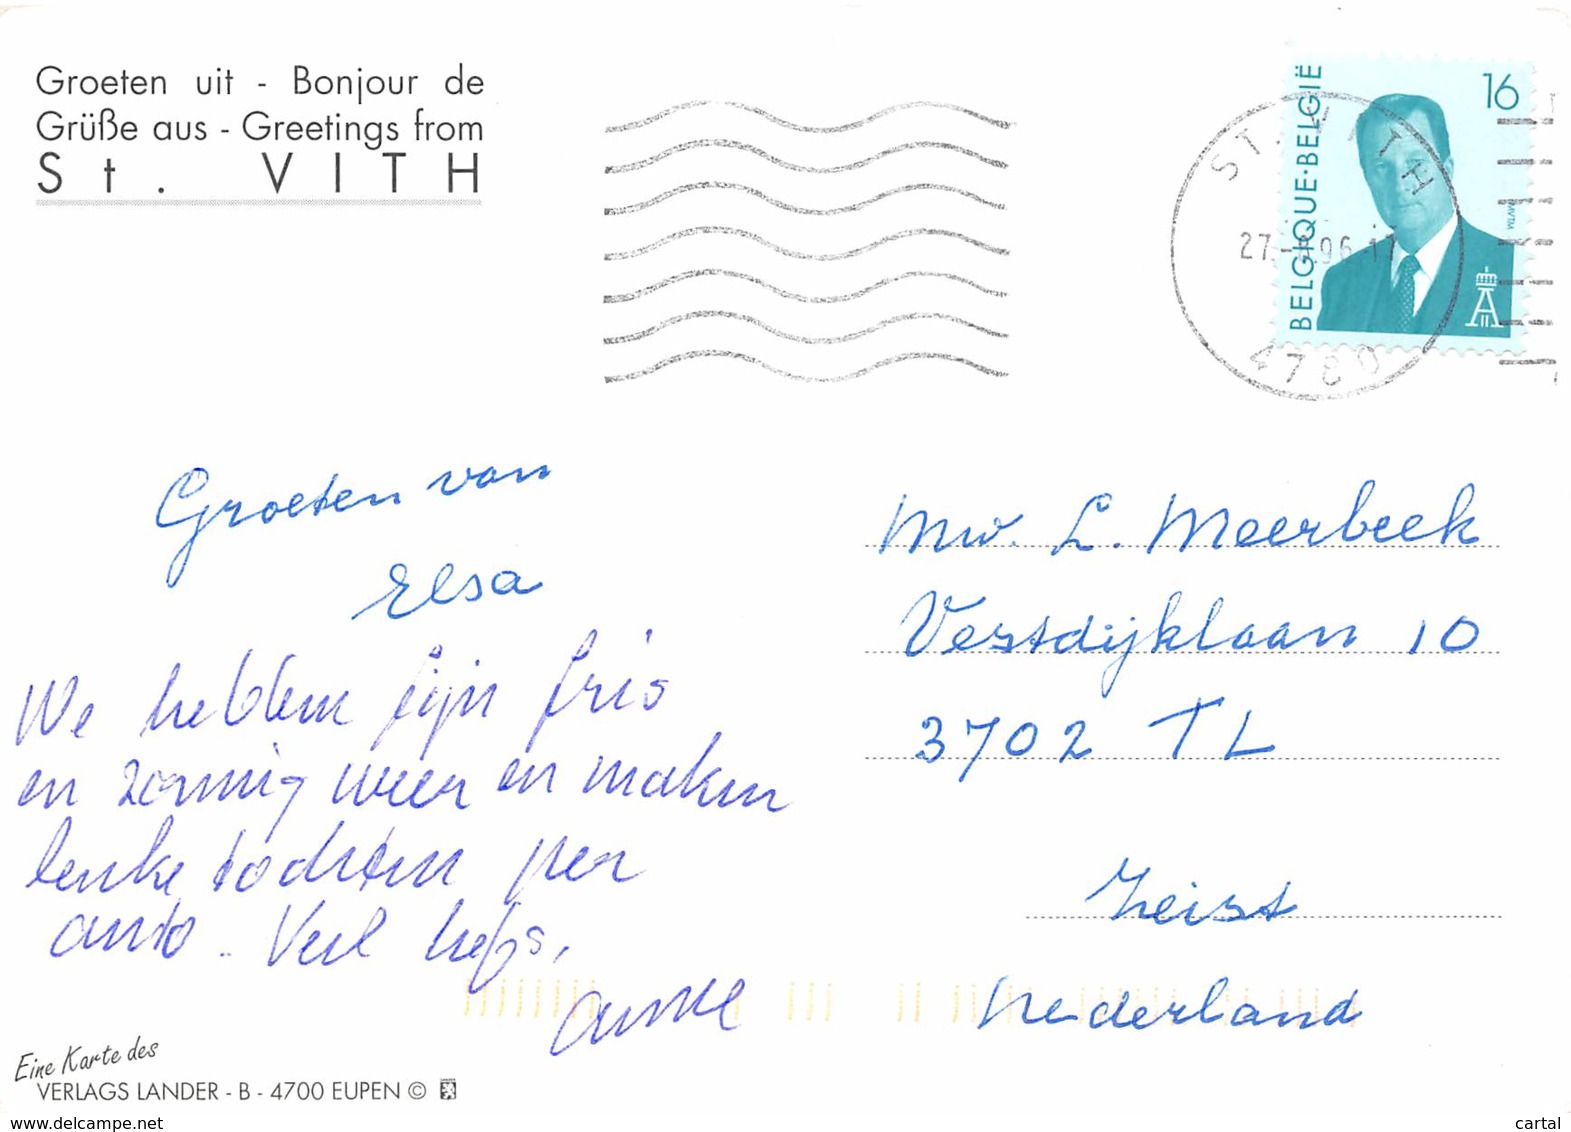 Groeten uit - Bonjour de
Grüße aus - Greetings from
St. VITH
16
BELGIQUE·BELGIË
MVTM
ST. VITH
27. 96-17
4780
Groeten van
Elsa
We hebben fijn fris
en zonnig weer en maken
leuke tochten per
auto. Veel liefs,
Mw. L. Meerbeek
Vestdijklaan 10
3702 TL
Zeist
Nederland
Eine Karte des
VERLAGS LANDER - B - 4700 EUPEN ©
www.delcampe.net
cartal